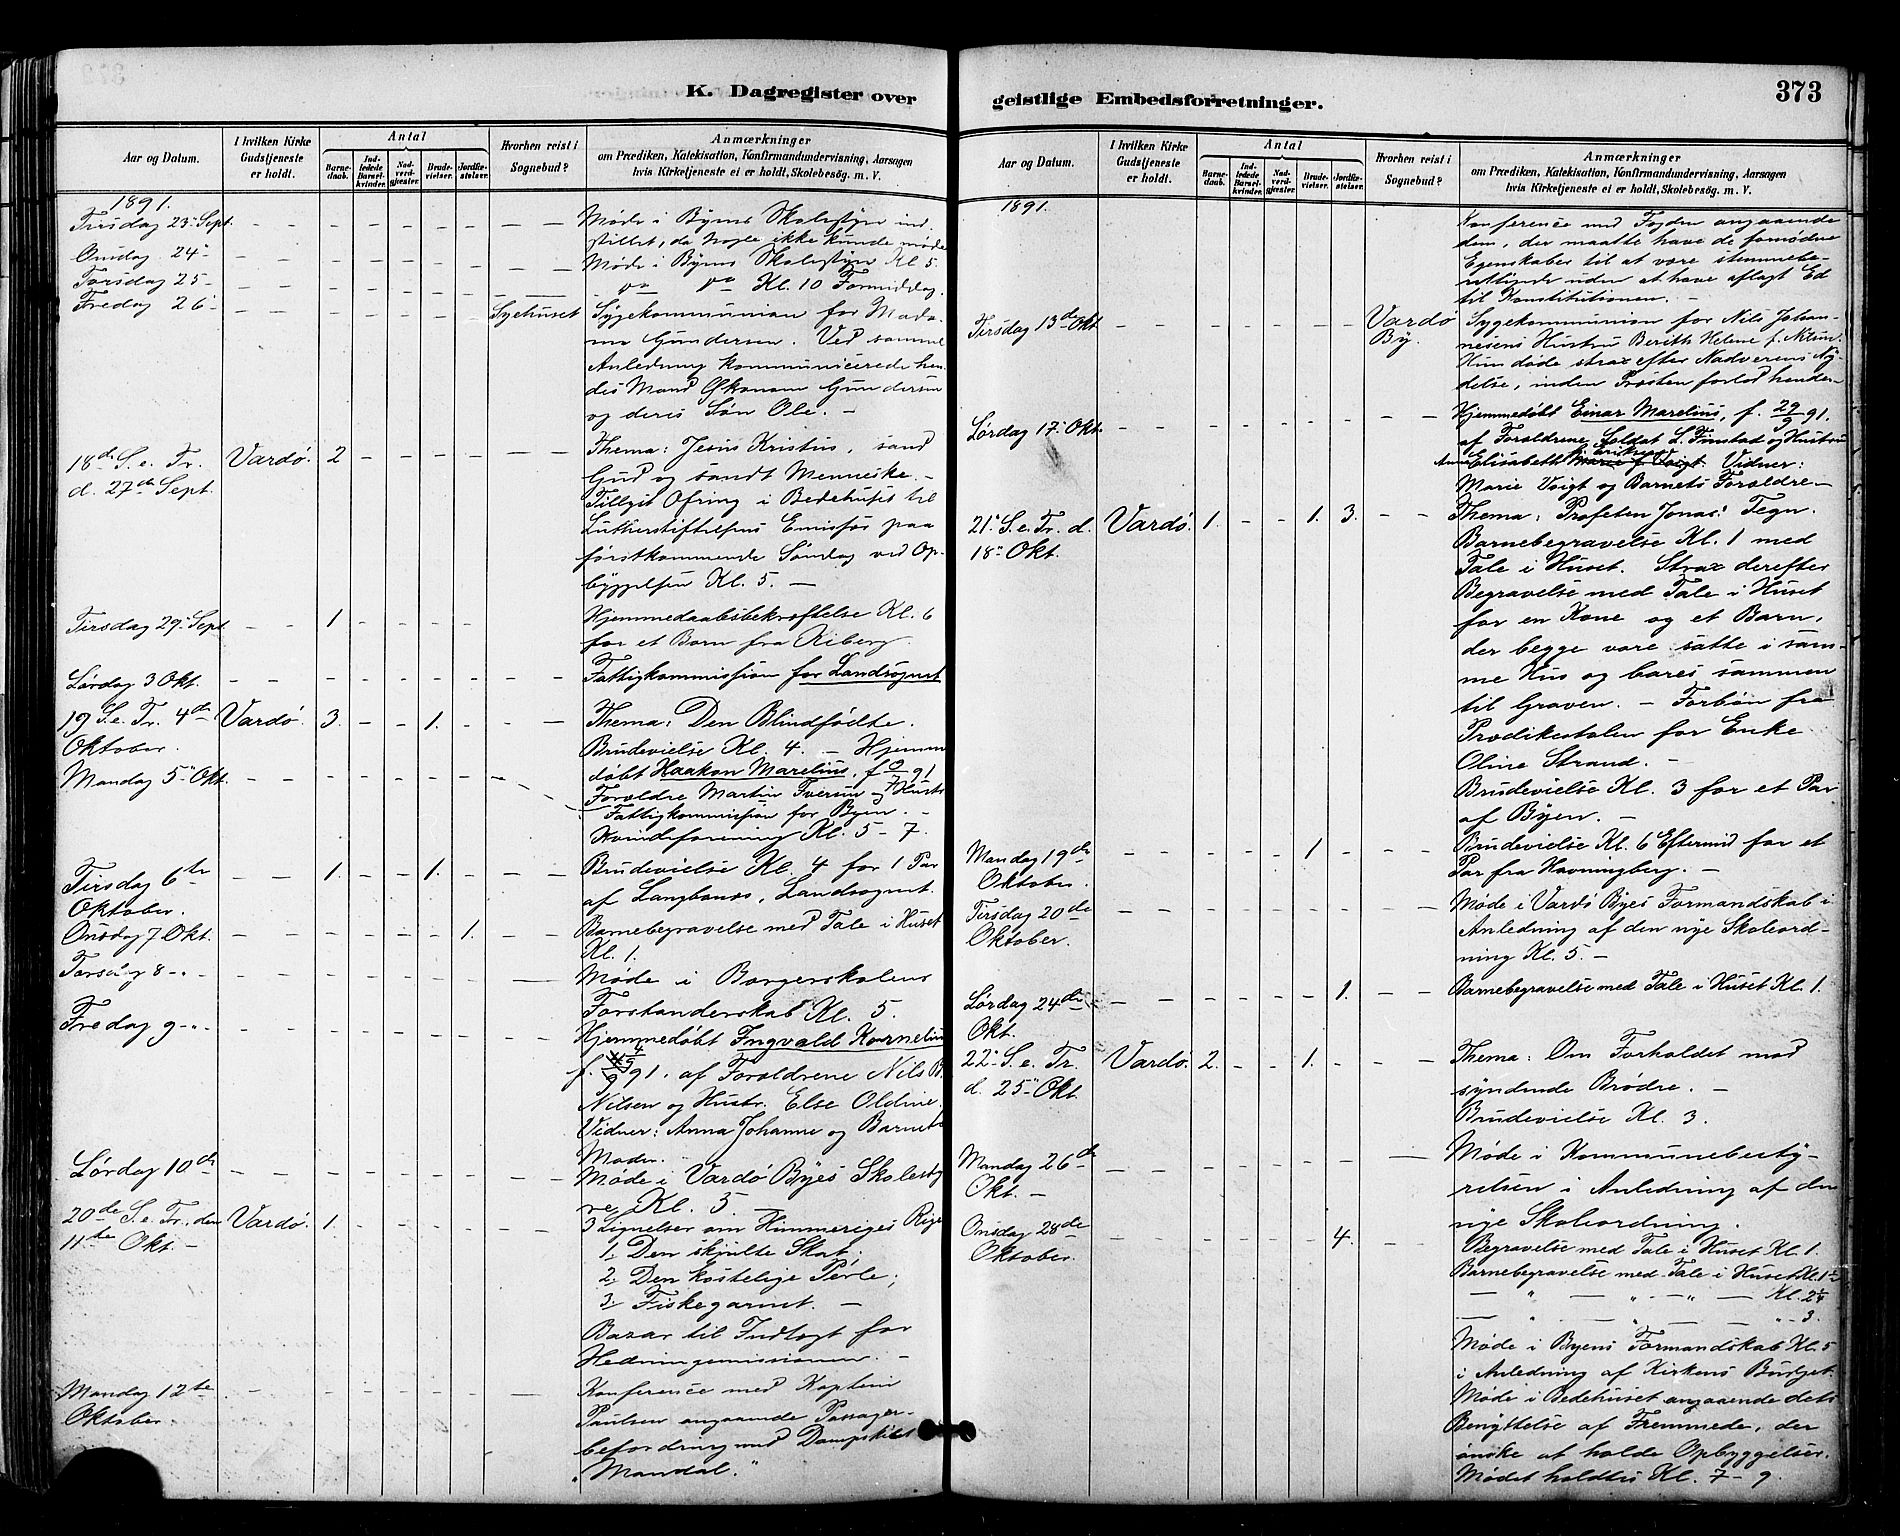 K. Dagregister over geistlige Embedsforretninger.
373
Aar og Datum.
I hvilken Kirke Gudstjeneste er holdt.
Antal
Barnedaab.
Indledede Barselkvinder.
Nadverdgjester.
Brudevielser.
Jordfæstelser.
Hvorhen reist i Sognebud?
Anmærkninger
om Prædiken, Katekisation, Konfirmandundervisning, Aarsagen
hvis Kirketjeneste ei er holdt, Skolebesøg. m. V.
1891.
Tirsdag 23 Sept. Møde i Byens Skolestyre ind
stillet, da Nogle ikke kunde møde
Onsdag 24 Møde i Byens Skolestyre Kl. 5.
Torsdag 25 do do Kl. 10 Formiddag.
Fredag 26 Sygehuset Sygekommunion for Mada-
me Gundersen. Ved samme
Anledning kommunicerede hen-
des Mand Økonom Gundersen
og deres Søn Ole. —
18de S. e. Tr. Vardø. 2 Thema: Jesus Kristus, sand
d. 27de Sept. Gud og sandt Menneske. —
Tillyst Ofring i Bedehuset til
Lutherstiftelsens Emissær paa
førstkommende Søndag ved Op-
byggelsen Kl. 5. —
Tirsdag 29 Sept. 1 Hjemmedaabsbekræftelse Kl. 6
for et Barn fra Kiberg.
Lørdag 3 Okt. Fattigkommission for Landsognet
19 S. e. Tr. 4de Vardø. 3. 1. Thema: Den Blindfødte.
Oktober. Brudevielse Kl. 4. — Hjemme
Mandag 5 Okt. døbt Haakon Marelius, f. 91
Forældre Martin Iversen og Hustr.
Fattigkommission for Byen. —
Kvindeforening Kl. 5 - 7.
Tirsdag 6te 1. 1. Brudevielse Kl. 4 for 1 Par
Oktober. af Langbunes, Landsognet.
Onsdag 7 Okt. 1. Barnebegravelse med Tale i Huset
Kl. 1.
Torsdag 8 Møde i Borgerskolens
Forstanderskab Kl. 5.
Fredag 9 Hjemmedøbt Ingvald Kornelius
f. 4/9 91. af Forældrene Nils B.
Nilsen og Hustr. Else Oldine.
Vidner: Anna Johanne og Barnets
Moder.
Lørdag 10de Møde i Vardø Byes Skolesty
re Kl. 5. —
20de S. e. Tr. den Vardø. 1. 3 Lignelser om Himmeriges Rige
11te Okt. — 1. Den skjulte Skat;
2. Den kostelige Perle;
3. Fiskegarnet. —
Bazar til Indtægt for
Hedningemissionen. —
Mandag 12te Konference med Kaptein
Oktober. Paulsen angaaende Passager-
befordring med Dampskibet
„Mandal."
Aar og Datum.
I hvilken Kirke Gudstjeneste er holdt.
Antal
Barnedaab.
Indledede Barselkvinder.
Nadverdgjester.
Brudevielser.
Jordfæstelser.
Hvorhen reist i Sognebud?
Anmærkninger
om Prædiken, Katekisation, Konfirmandundervisning, Aarsagen
hvis Kirketjeneste ei er holdt, Skolebesøg. m. V.
1891. Konference med Fogden angaaende
dem, der maatte have de fornødne
Egenskaber til at være stemmebe-
rettigede uden at have aflagt Ed
til Konstitutionen. —
Tirsdag 13de Okt. Vardø Sygekommunion for Nils Johan-
By. nesens Hustru Berith Helene f. Nilsen.
Hun døde strax efter Nadverens Ny-
delse, inden Præsten forlod hende.
Lørdag 17 Okt. Hjemmedøbt Einar Marelius, f. 29/9 91.
af Forældrene Soldat L. Finstad og Hustru
Anna Elisabeth Marie f. Voigt. Vidner:
Marie Voigt og Barnets Forældre —
21 S. e. Tr. d. Vardø. 1. 1. 3. Thema: Profeten Jonas' Tegn.
18 Okt. Barnebegravelse Kl. 1 med
Tale i Huset. Strax derefter
Begravelse med Tale i Huset
for en Kone og et Barn,
der begge vare satte i sam-
me Hus og bares sammen
til Graven. — Forbøn fra
Prædikestolen for Enke
Oline Strand. —
Brudevielse Kl. 3 for et Par
af Byen. —
Mandag 19de 1 Brudevielse Kl. 6 Eftermid for et
Oktober. Par fra Havningberg. —
Tirsdag 20de Møde i Vardø Byes Formandskab i
Oktober. Anledning af den nye Skoleord-
ning Kl. 5. —
Lørdag 24de 1. Barnebegravelse med Tale i Huset Kl. 1.
Okt.
22 S. e. Tr. Vardø. 2. 1. Thema: Om Forholdet mod
d. 25 Okt. syndende Brødre. —
Brudevielse Kl. 3.
Mandag 26de Møde i Kommunebesty-
Okt. — relsen i Anledning af den
nye Skoleordning.
Onsdag 28de 4. Begravelse med Tale i Huset Kl. 1.
Oktober. Barnebegravelse med Tale i Huset Kl. 1½
— " — " — " — Kl. 2¼
— " — " — " 3.
Møde i Byens Formandskab Kl. 5
i Anledning af Kirkens Budget.
Møde i Bedehuset angaaende dets
Benyttelse af Fremmede, der
ønske at holde Opbyggelser.
Mødet holdtes Kl. 7 - 9.